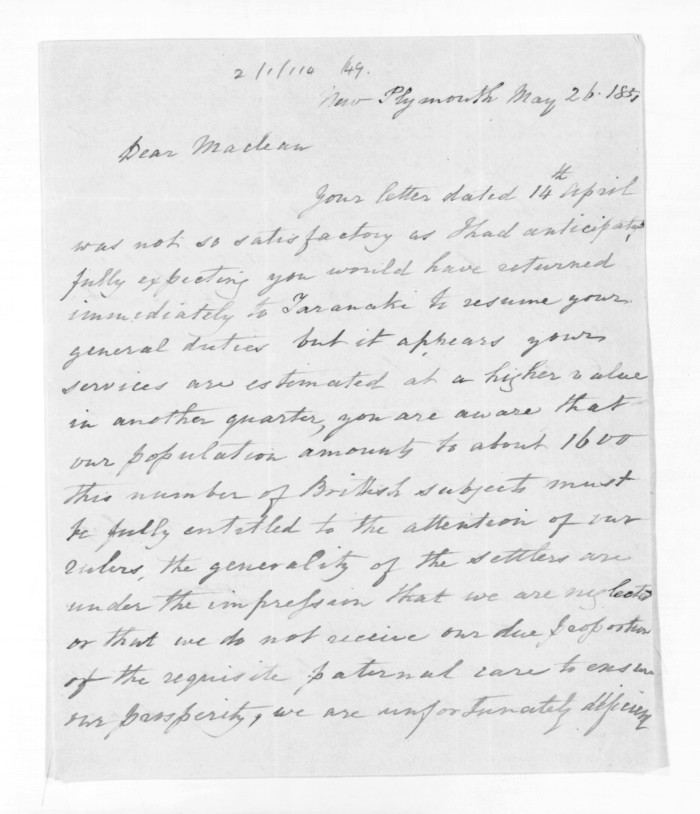 2/1/114 49.
New Plymouth May 26. 1851
Dear Maclean
Your letter dated 14th April
was not so satisfactory as I had anticipated,
fully expecting you would have returned
immediately to Taranaki to resume your
general duties but it appears your
services are estimated at a higher value
in another quarter, you are aware that
our population amounts to about 1600
this number of Brittish subjects must
be fully entitled to the attention of our
rulers, the generality of the settlers are
under the impression that we are neglected
or that we do not receive our due proportion
of the requisite paternal care to ensure
our prosperity, we are unfortunately